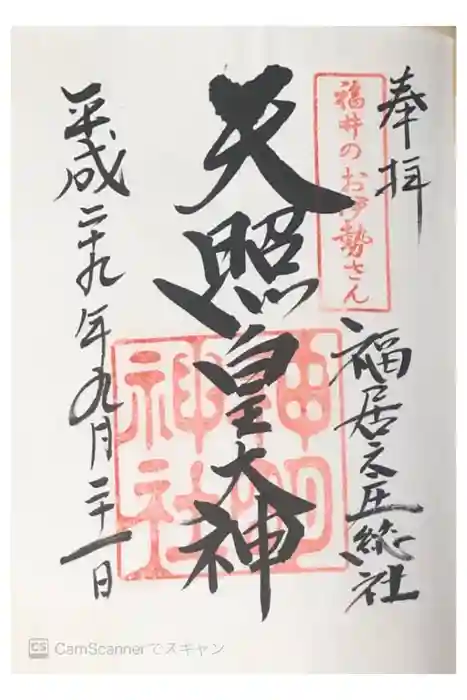 奉拝
福井のお伊勢さん
福居之庄総社
天照皇大神
神明
神社
平成二十九年九月二十一日
CamScannerでスキャン